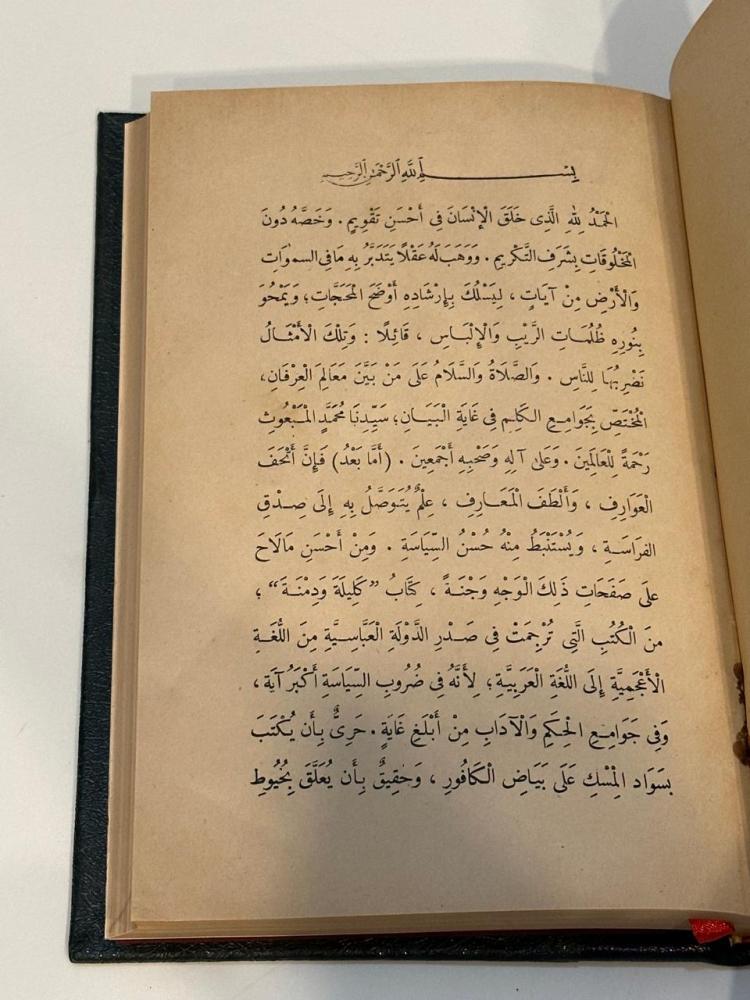 بِسْمِ ٱللَّهِ ٱلرَّحْمَٰنِ ٱلرَّحِيمِ
الحَمْدُ لِلّٰهِ الَّذِى خَلَقَ الْإِنْسَانَ فِى أَحْسَنِ تَقْوِيمٍ . وَخَصَّهُ دُونَ
الْمَخْلُوقَاتِ بِشَرَفِ التَّكْرِيمِ . وَوَهَبَ لَهُ عَقْلًا يَتَدَبَّرُ بِهِ مَا فِى السمٰوَاتِ
وَالْأَرْضِ مِنْ آيَاتٍ ، لِيَسْلُكَ بِإِرْشَادِهِ أَوْضَحَ الْمَحَجَّاتِ ؛ وَيَمْحُوَ
بِنُورِهِ ظُلُمَاتِ الرَّيْبِ وَالْإِلْبَاسِ ، قَائِلًا : وَتِلْكَ الْأَمْثَالُ
نَضْرِبُهَا لِلنَّاسِ . وَالصَّلَاةُ وَالسَّلَامُ عَلَى مَنْ بَيَّنَ مَعَالِمَ الْعِرْفَانِ ،
الْمُخْتَصِّ بِجَوَامِعِ الكَلِمِ فِى غَايَةِ الْبَيَانِ ؛ سَيِّدِنَا مُحَمَّدٍ الْمَبْعُوثِ
رَحْمَةً لِلْعَالَمِينَ . وَعَلَى آلِهِ وَصَحْبِهِ أَجْمَعِينَ . (أَمَّا بَعْدُ) فَإِنَّ أَتْحَفَ
الْعَوَارِفِ ، وَأَلْطَفَ الْمَعَارِفِ ، عِلْمٌ يُتَوَصَّلُ بِهِ إِلَى صِدْقِ
الفِرَاسَةِ ، وَيُسْتَنْبَطُ مِنْهُ حُسْنُ السِّيَاسَةِ . وَمِنْ أَحْسَنِ مَا لَاحَ
عَلَى صَفَحَاتِ ذَلِكَ الْوَجْهِ وَجْنَةً ، كِتَابُ ”كَلِيلَةَ وَدِمْنَةَ“ ؛
مِنَ الْكُتُبِ الَّتِى تُرْجِمَتْ فِى صَدْرِ الدَّوْلَةِ الْعَبَّاسِيَّةِ مِنَ اللُّغَةِ
الْأَعْجَمِيَّةِ إِلَى اللُّغَةِ الْعَرَبِيَّةِ ؛ لِأَنَّهُ فِى ضُرُوبِ السِّيَاسَةِ أَكْبَرُ آيَة ،
وَفِى جَوَامِعِ الْحِكَمِ وَالْآدَابِ مِنْ أَبْلَغِ غَايَةٍ . حَرِىٌّ بِأَن يُكْتَبَ
بِسَوَادِ الْمِسْكِ عَلَى بَيَاضِ الْكَافُورِ ، وَحَقِيقٌ بِأَن يُعَلَّقَ بِخُيُوطِ